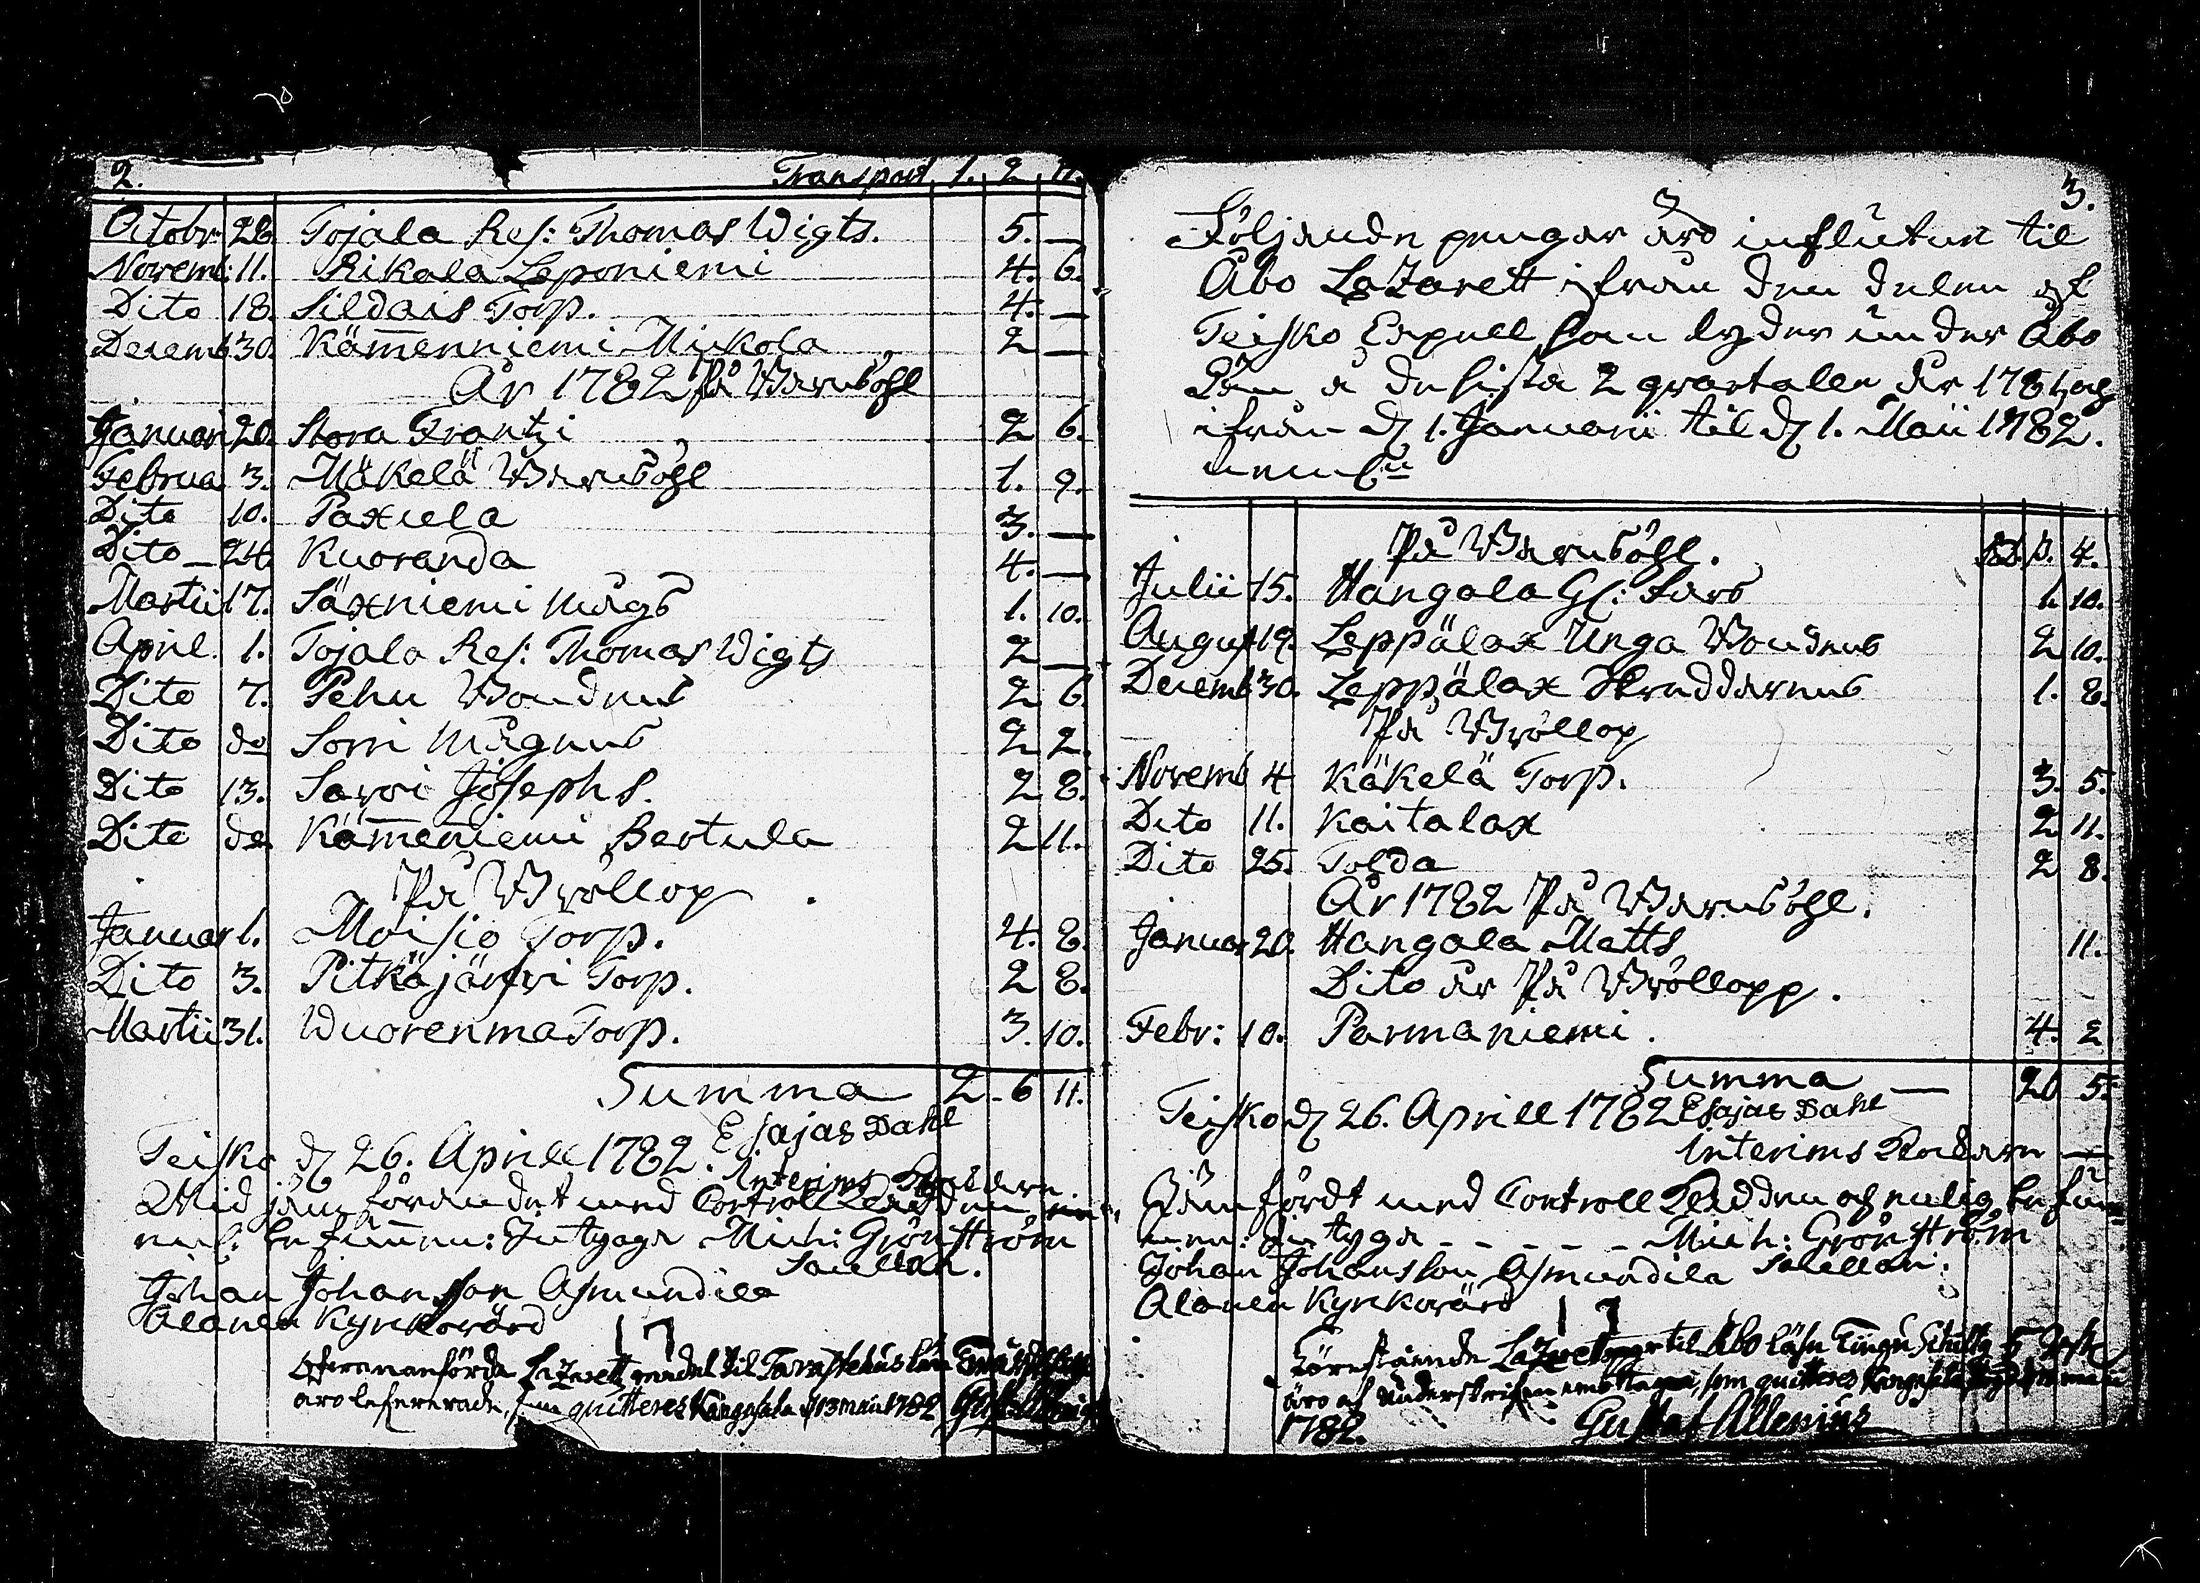 2. Transport 1. 2 11.
Octobr 28. Tojala Res: Thomas Wigts. 5. —
Novemb: 11. Rikala Leponiemi 4. 6.
Dito 18. Sildais Torp. 4. —
Decemb 30. Kämenniemi Mickola 2 —
År 1782 På Barnsöhl
Januari 20. Stora Frantzi 2 6.
Februa 3. Mäkelä Barnsöhl 1. 9.
Dito 10. Paxula 3. —
Dito — 24. Kuoranda 4. —
Martii 17. Säxniemi Mågs 1. 10.
April. 1. Tojala Res: Thomas Wigts 2 —
Dito 7. Pehu Bondens 2 6.
Dito do Sorri Magnus 2 2.
Dito 13. Sarvi Josephs. 2 8.
Dito do Kämeniemi Bertula 2 11.
På Bröllop
Januar 1. Moisio Torp. 4. 8.
Dito 3. Pitkäjärfvi Torp. 2 8.
Martii 31. Wuorenma Torp. 3. 10.
Summa 2 - 6 11.
Teisko d 26. Aprill 1782. Esajas Dahl
Interims
Wid jämförandet med Controll
enl. befunnen: Intyga Mich: Grönström
Sacellan.
Johan Johansson Asmundila
Alanen Kyrkovärd
17
Ofvananförde Lazaretts medel til Tavastehus län
äro lefvererade, som quitteres Kangasala d 13 maii 1782
3.
Följande pengar äro influtne til
Åbo Lazarett ifrån den delen af
Teisko Capell som lyder under Åbo
Län å de sista 2 qvartaler år 1781, och
ifrån d 1. Januarii til d 1. Maii 1782.
neml
På Barnsöhl. RD. s. 4.
Julii 15. Hangala Gl: Lars 1. 10.
August 19. Leppälax Unga Bondens 2 10.
Decemb 30. Leppälax Skräddarens 1. 8.
På Bröllop
Novemb 4 Käkelä Torp. 3. 5.
Dito 11. Kaitalax 2 11.
Dito 25. Tolda 2 8.
År 1782 På Barnsöhl.
Januar 20. Hangala Matts 11.
Dito år På Bröllopp.
Febr: 10. Parmaniemi. 4. 2
Summa — 20 5.
Teisko d 26. Aprill 1782 Esajas Dahl
Interims
Jämfördt med Controll Lådden och enlig befun-
nen: Intyga - - - - - Mich: Grönström
Johan Johansson Asmundila Sacellan:
Alanen Kyrkovärd
17
Förestående til Åbo Lähn
äro af underskrifven emottagne, som quitteres Kangasala
1782. Gustaf Allenius